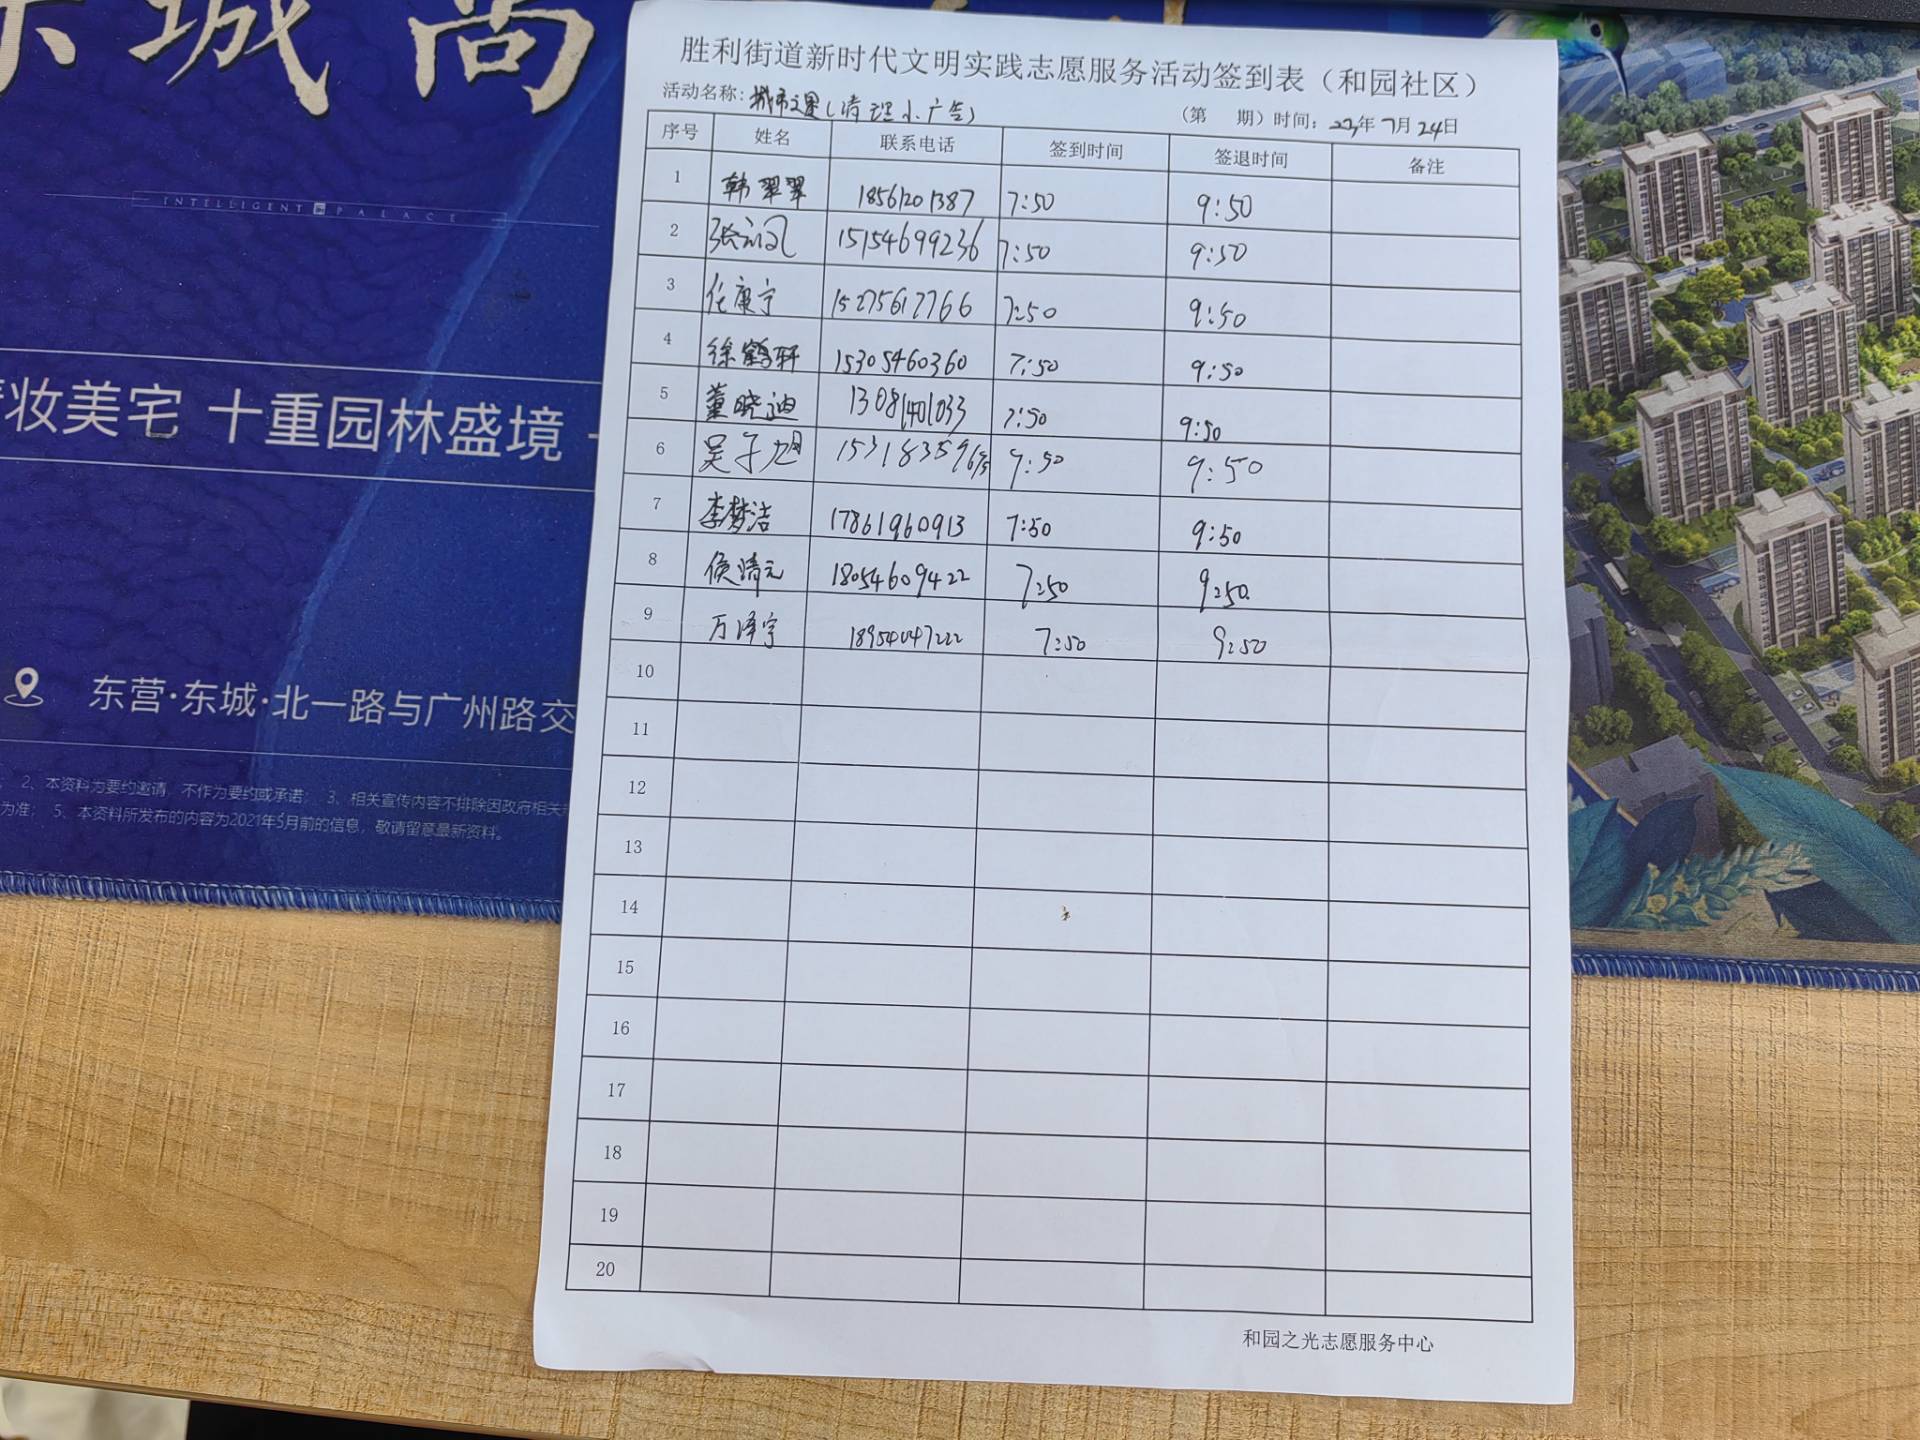 东城尚
INTELLIGENT PALACE
妆美宅 十重园林盛境
东营·东城·北一路与广州路交
2、本资料为要约邀请，不作为要约或承诺； 3、相关宣传内容不排除因政府相关
为准； 5、本资料所发布的内容为2021年5月前的信息，敬请留意最新资料。
胜利街道新时代文明实践志愿服务活动签到表（和园社区）
活动名称：城市之美(清理小广告) （第 期）时间：22年7月24日
序号 姓名 联系电话 签到时间 签退时间 备注
1 韩翠翠 18561201387 7:50 9:50
2 张 15154699236 7:50 9:50
3 任康宁 15275617766 7:50 9:50
4 徐鹤轩 15305460360 7:50 9:50
5 董晓迪 13081401033 7:50 9:50
6 吴子旭 153183596 9:50 9:50
7 李梦洁 17861960913 7:50 9:50
8 侯靖元 18054609422 7:50 9:50
9 万泽宇 18954047222 7:50 9:50
10
11
12
13
14
15
16
17
18
19
20
和园之光志愿服务中心